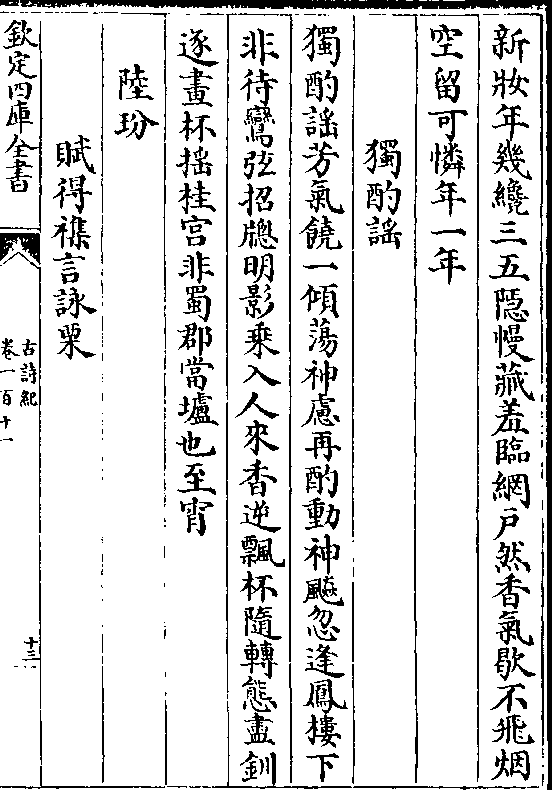 新妝年幾纔三五隱幔藏羞臨網戸然香氣歇不飛烟
空留可憐年一年
獨酌謡
獨酌謡芳氣饒一傾蕩神慮再酌動神飇忽逢鳳樓下
非待鸞弦招牎明影乘入人來香逆飄杯隨轉態盡釧
逐畫杯揺桂宮非蜀郡當壚也至宵
陸玢
賦得雜言詠栗
欽定四庫全書
古詩紀
卷一百十一
十三